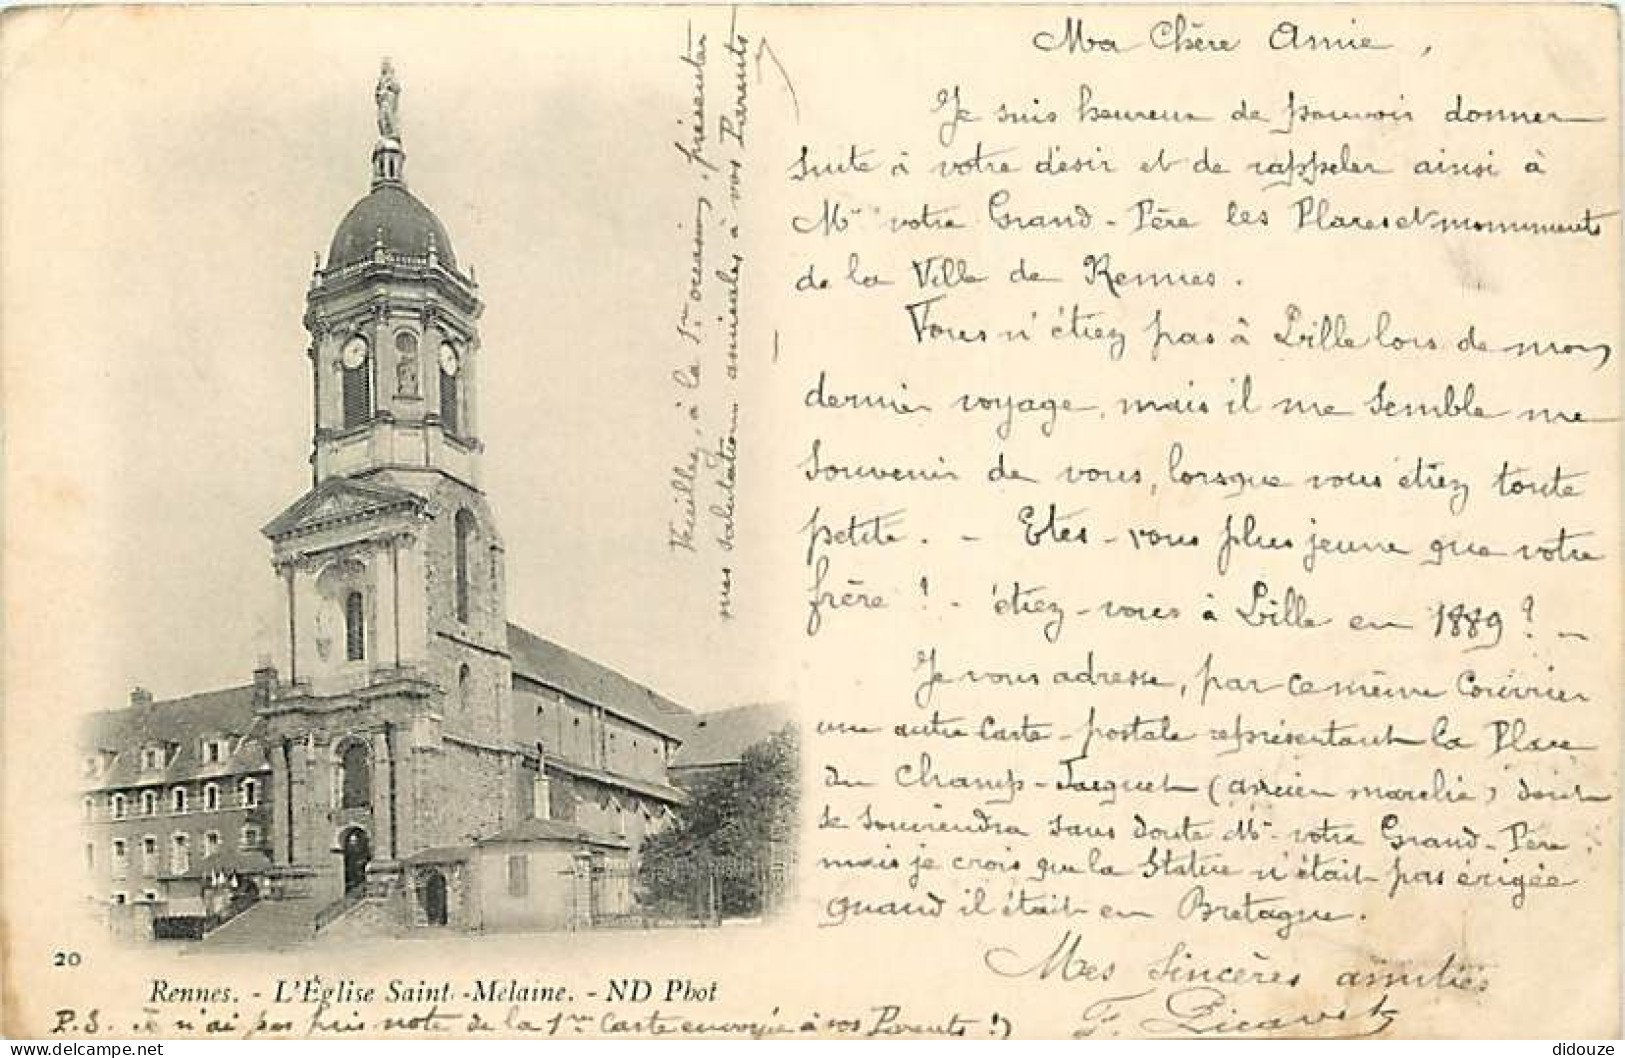 Ma Chère Amie,
Je suis heureux de pouvoir donner
suite à votre désir et de rappeler ainsi à
Mr votre Grand-Père les Places et monuments
de la Ville de Rennes.
Vous n'étiez pas à Lille lors de mon
dernier voyage, mais il me semble me
souvenir de vous, lorsque vous étiez toute
petite. - Etes-vous plus jeune que votre
frère ! - étiez-vous à Lille en 1889 ? -
Je vous adresse, par ce même Courrier
une autre Carte-postale représentant la Place
du Champ-Jacquet (ancien marché) dont
se souviendra sans doute Mr votre Grand-Père,
mais je crois que la Statue n'était pas érigée
quand il était en Bretagne.
Mes sincères amitiés
F.
Veuillez, à la 1re occasion, présenter
mes salutations amicales à vos Parents
20
Rennes. - L'Église Saint-Melaine. - ND Phot
P.S. Je n'ai pas pris note de la 1re Carte envoyée à vos Parents !)
didouze